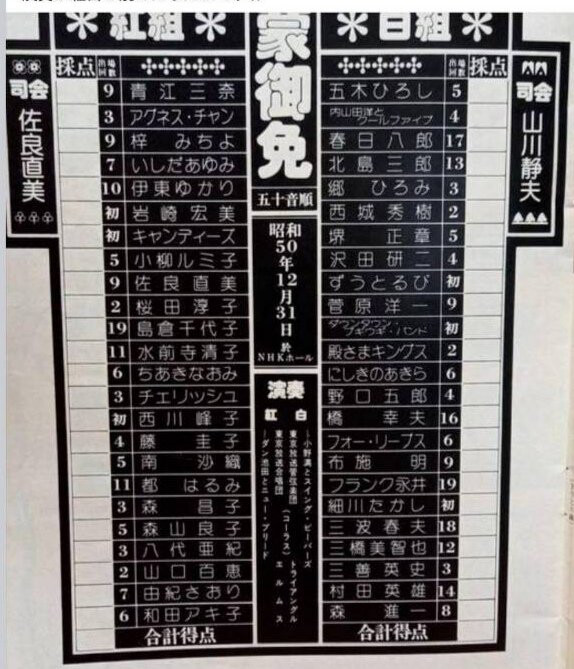 紅組
司会
佐良直美
採点
出場回数
9 青江三奈
3 アグネス・チャン
9 梓みちよ
7 いしだあゆみ
10 伊東ゆかり
初 岩崎宏美
初 キャンディーズ
5 小柳ルミ子
9 佐良直美
2 桜田淳子
19 島倉千代子
11 水前寺清子
6 ちあきなおみ
3 チェリッシュ
初 西川峰子
4 藤圭子
5 南沙織
11 都はるみ
3 森昌子
5 森山良子
3 八代亜紀
2 山口百恵
7 由紀さおり
6 和田アキ子
合計得点
蒙御免
五十音順
昭和50年12月31日
於
NHKホール
演奏
紅 白
小野満とスイング・ビーバーズ
東京放送管弦楽団
東京放送合唱団
(コーラス)
トライアングル
エルムス
ダン池田とニュー・ブリード
白組
司会
山川静夫
出場回数
採点
五木ひろし 5
内山田洋とクールファイブ 4
春日八郎 17
北島三郎 13
郷ひろみ 3
西城秀樹 2
堺正章 5
沢田研二 4
ずうとるび 初
菅原洋一 9
ダウンタウン・ブギウギ・バンド 初
殿さまキングス 2
にしきのあきら 6
野口五郎 4
橋幸夫 16
フォー・リーブス 6
布施明 9
フランク永井 19
細川たかし 初
三波春夫 18
三橋美智也 12
三善英史 3
村田英雄 14
森進一 8
合計得点